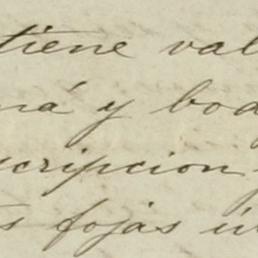 tiene val
ná y bod
scripcion
s fojas ú